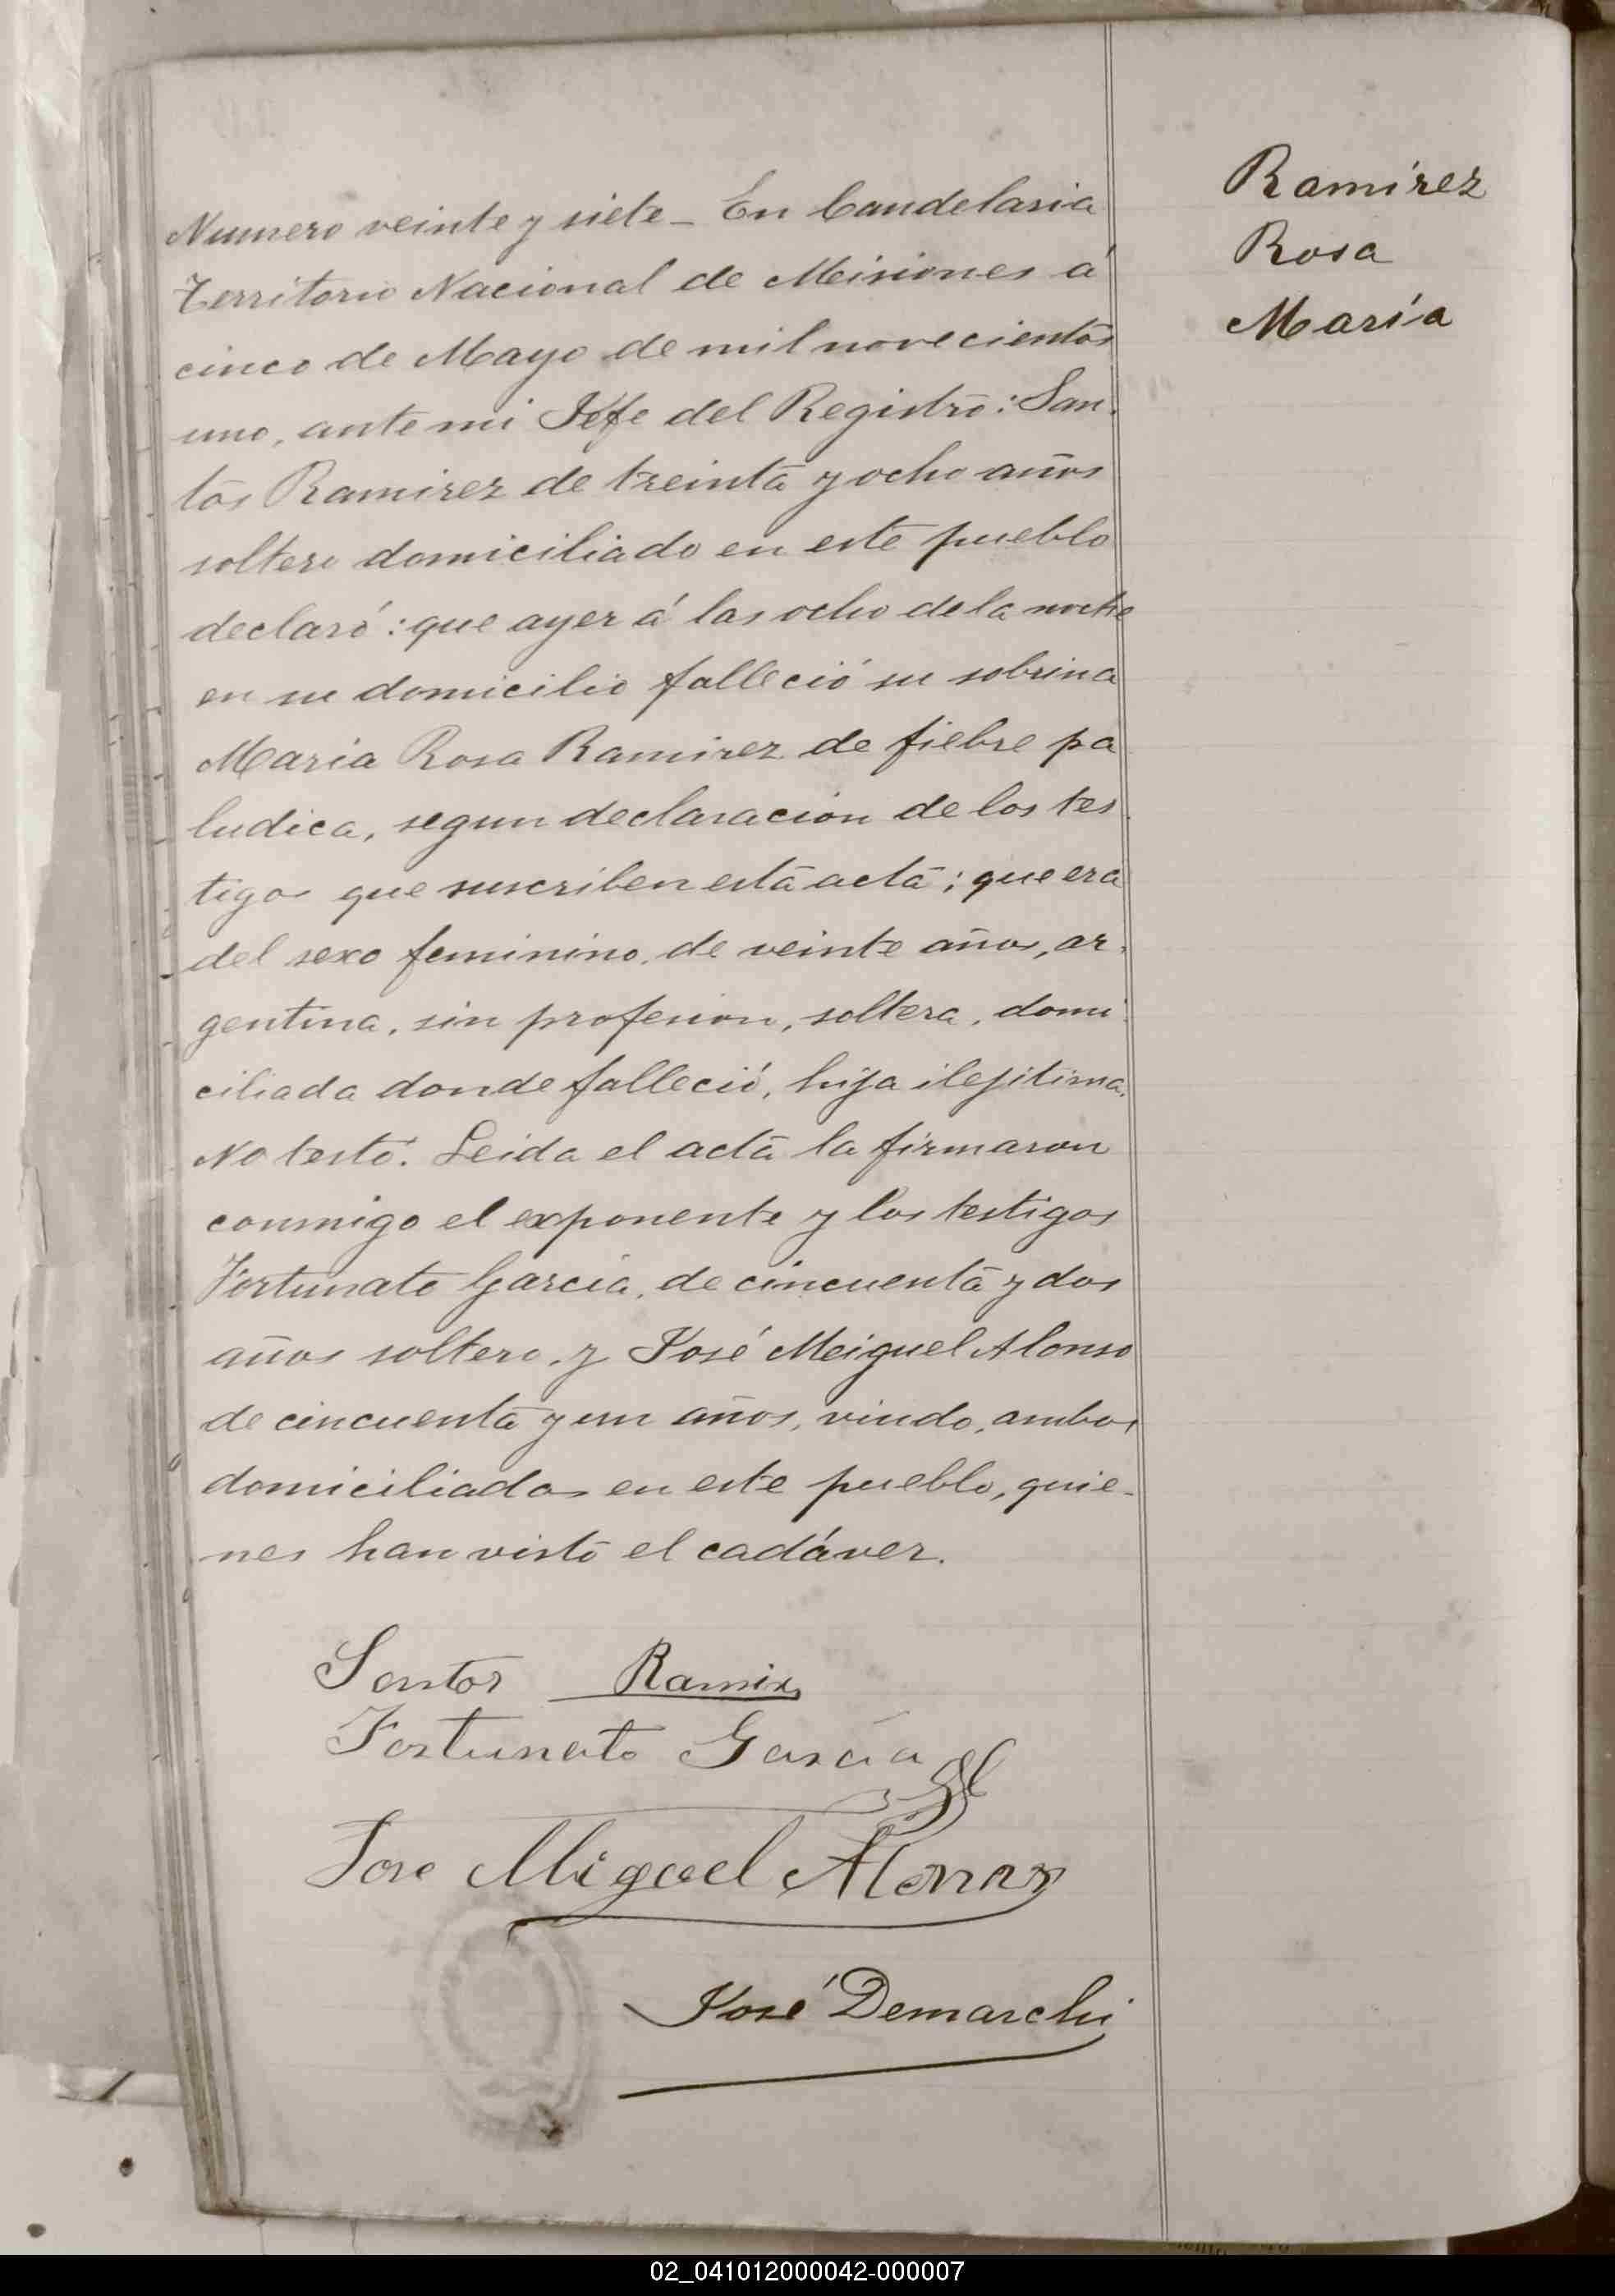 Numero veinte y siete_ En Candelaria
Territorio Nacional de Misiones á
cinco de Mayo de mil novecientos
uno, ante mi Jefe del Registro: San
tos Ramirez de treinta y ocho años
soltero domiciliado en este pueblo
declaró: que ayer á las ocho de la noche
en su domicilio falleció su sobrina
Maria Rosa Ramirez de fiebre pa
ludica, segun declaracion de los tes
tigos que suscriben esta acta; que era
del sexo feminino, de veinte años, ar
gentina, sin profesion, soltera, domi
ciliada donde falleció, hija ilejitima.
No testó. Leida el acta la firmaron
conmigo el exponente y los testigos
Fortunato Garcia, de cincuenta y dos
años soltero, y José Miguel Alonso
de cincuenta y un años, viudo, ambos
domiciliados en este pueblo, quie-
nes han visto el cadáver.
Santos Ramirez
Fortunato Garcia
Jose Miguel Alonso
José Demarchi
Ramirez
Rosa
María
02_041012000042-000007